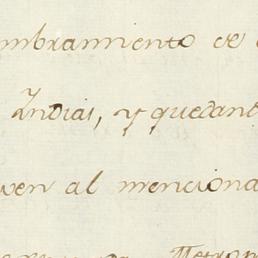 ombramiento de
Indias, y quedant
ven al menciona
Metrop